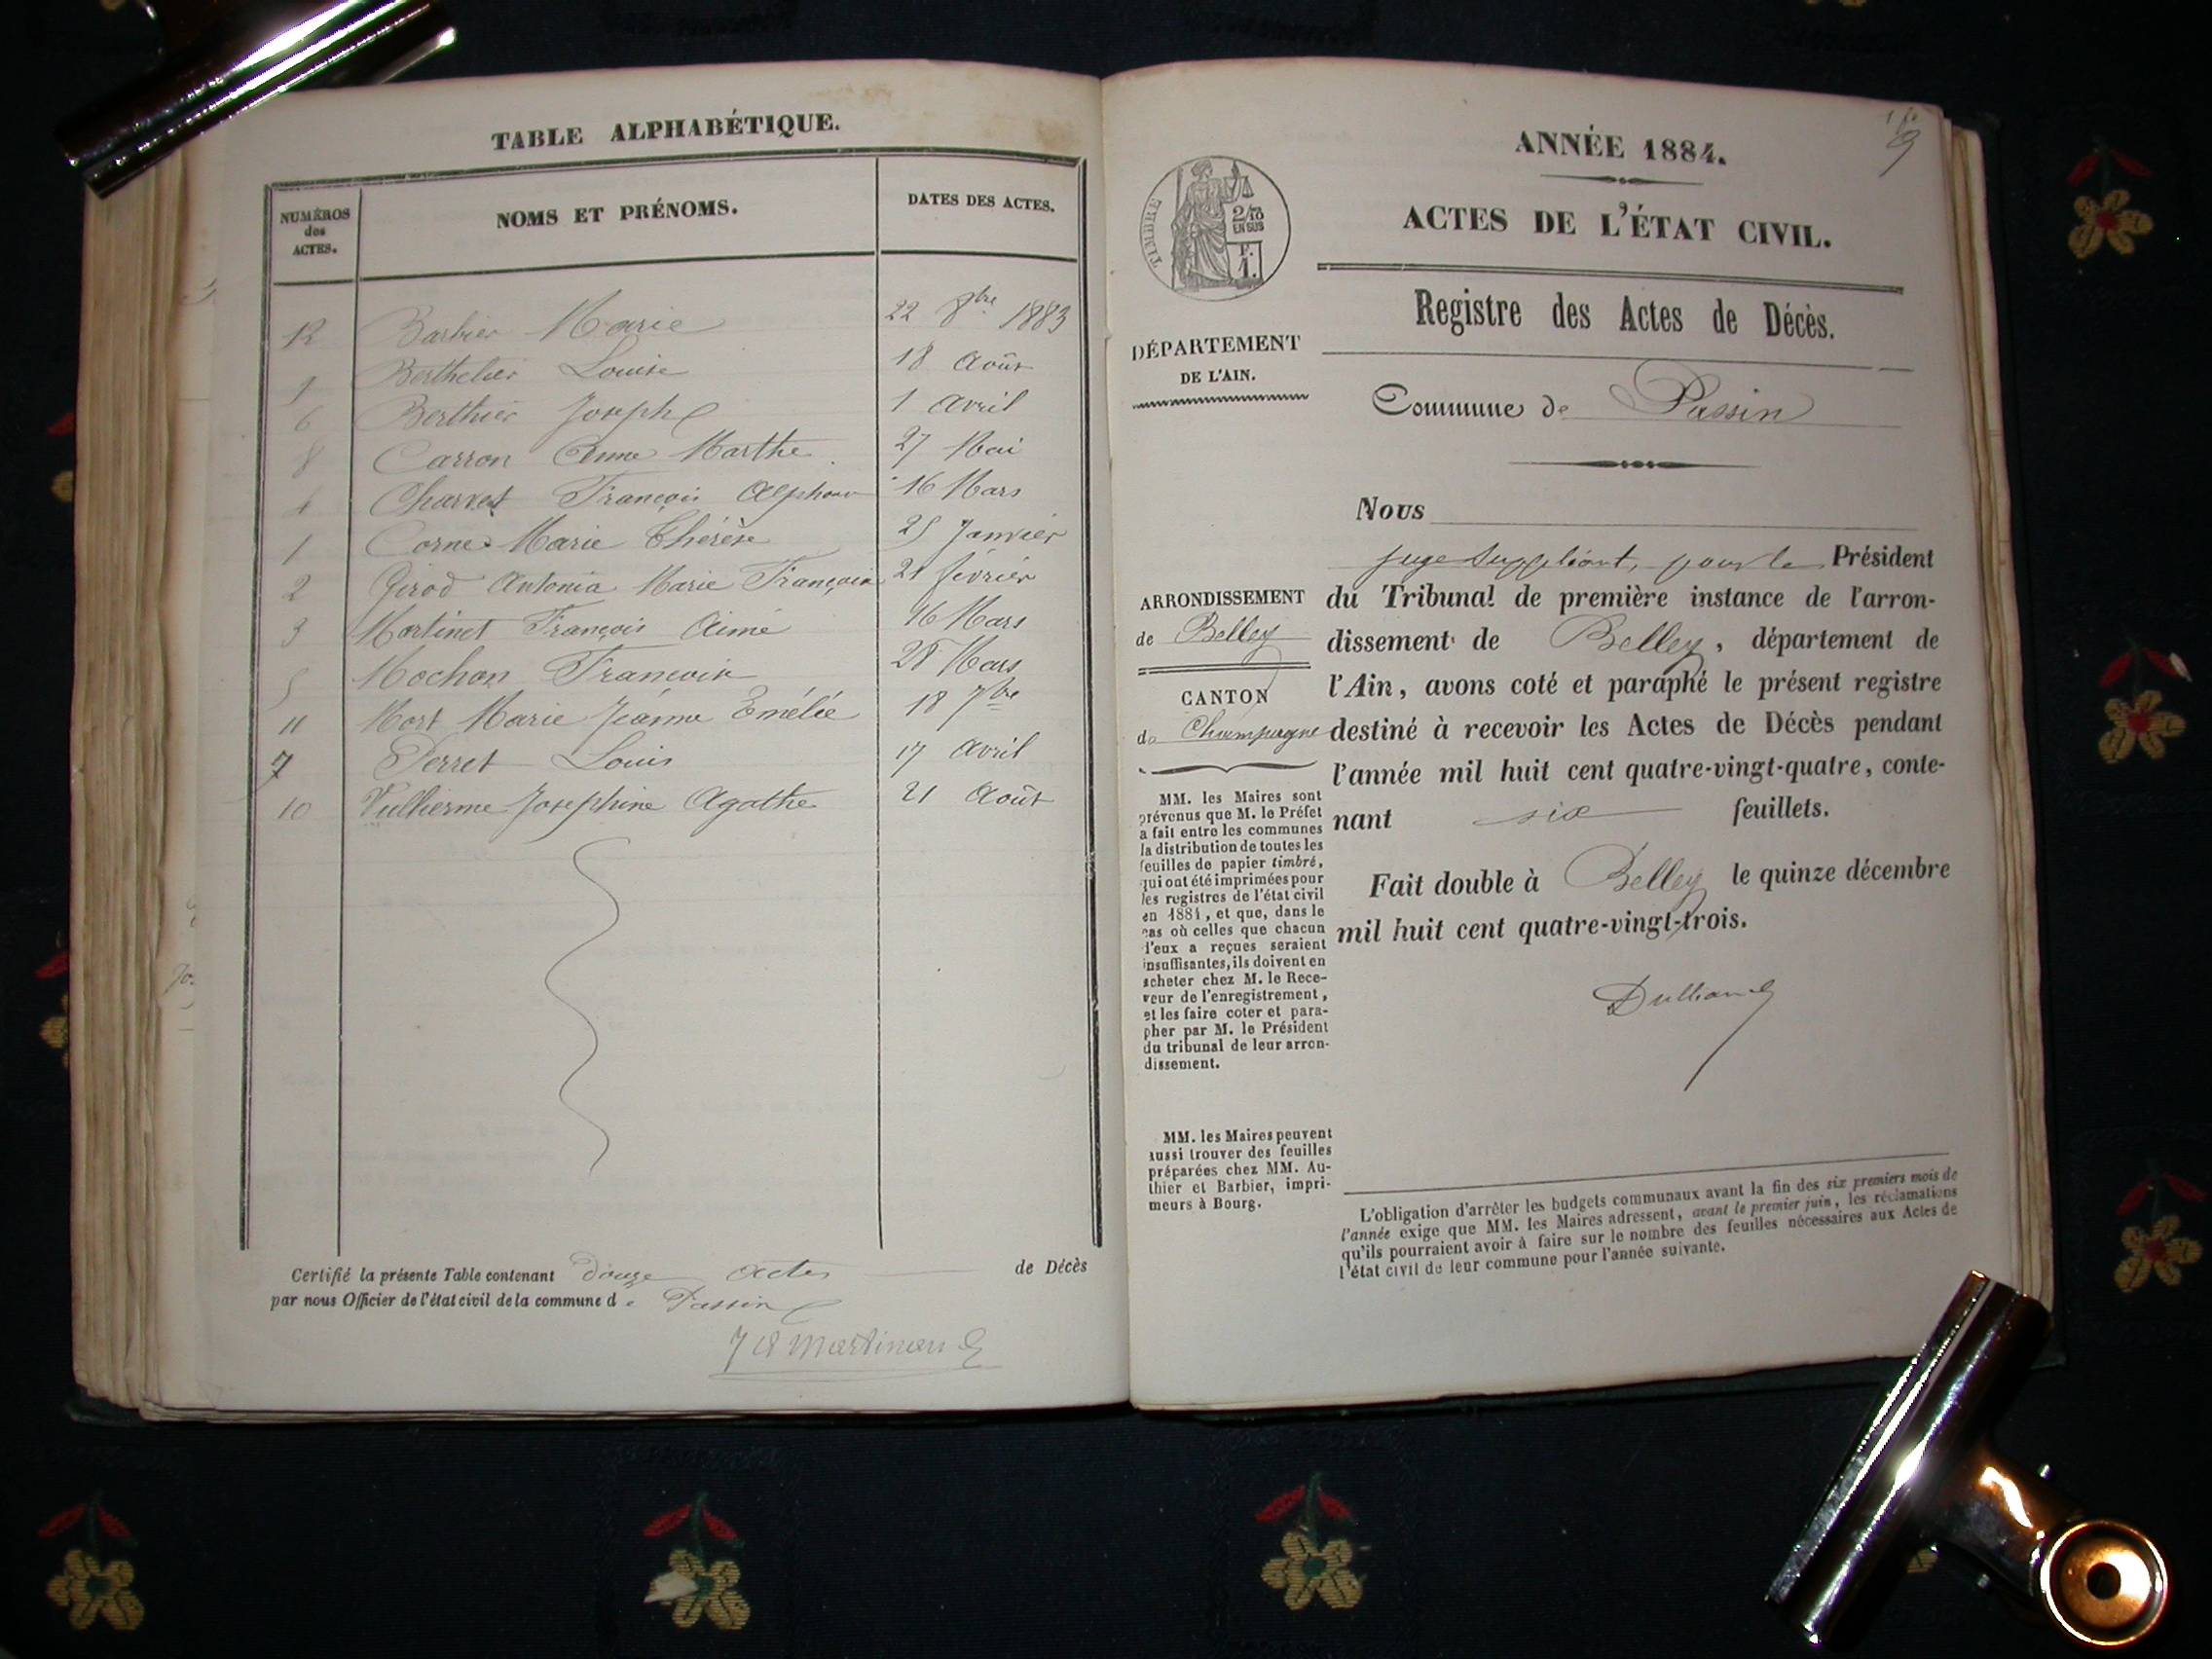 TABLE ALPHABÉTIQUE.
NUMÉROS des ACTES.
NOMS ET PRÉNOMS.
DATES DES ACTES.
12 Barbier Marie 22 8bre 1883
9 Berthelier Louise 18 Août
6 Berthier Joseph 1 avril
8 Carron Anne Marthe 27 Mai
4 Charvet François Alphonse 16 Mars
1 Corne Marie Thérèse 25 Janvier
2 Girod Antonia Marie Françoise 21 février
3 Martinet François Aimé 16 Mars
5 Mochon François 28 Mars
11 Mort Marie Jeanne Emélie 18 7bre
7 Perret Louis 17 avril
10 Vullierme Josephine Agathe 21 Août
Certifié la présente Table contenant douze actes de Décès
par nous Officier de l'état civil de la commune de Passin
Martinand
9
ANNÉE 1884.
ACTES DE L'ÉTAT CIVIL.
TIMBRE
2/10
EN SUS
F.
1.
Registre des Actes de Décès.
DÉPARTEMENT
DE L'AIN.
Commune de Passin
Nous
juge Suppléant, pour le Président
du Tribunal de première instance de l'arron-
dissement de Belley, département de
l'Ain, avons coté et paraphé le présent registre
destiné à recevoir les Actes de Décès pendant
l'année mil huit cent quatre-vingt-quatre, conte-
nant six feuillets.
Fait double à Belley le quinze décembre
mil huit cent quatre-vingt-trois.
Dulliand
ARRONDISSEMENT
de Belley
CANTON
de Champagne
MM. les Maires sont
prévenus que M. le Préfet
a fait entre les communes
la distribution de toutes les
feuilles de papier timbré,
qui ont été imprimées pour
les registres de l'état civil
en 1884, et que, dans le
cas où celles que chacun
d'eux a reçues seraient
insuffisantes, ils doivent en
acheter chez M. le Rece-
veur de l'enregistrement,
et les faire coter et para-
pher par M. le Président
du tribunal de leur arron-
dissement.
MM. les Maires peuvent
aussi trouver des feuilles
préparées chez MM. Au-
thier et Barbier, impri-
meurs à Bourg.
L'obligation d'arrêter les budgets communaux avant la fin des six premiers mois de
l'année exige que MM. les Maires adressent, avant le premier juin, les réclamations
qu'ils pourraient avoir à faire sur le nombre des feuilles nécessaires aux Actes de
l'état civil de leur commune pour l'année suivante.